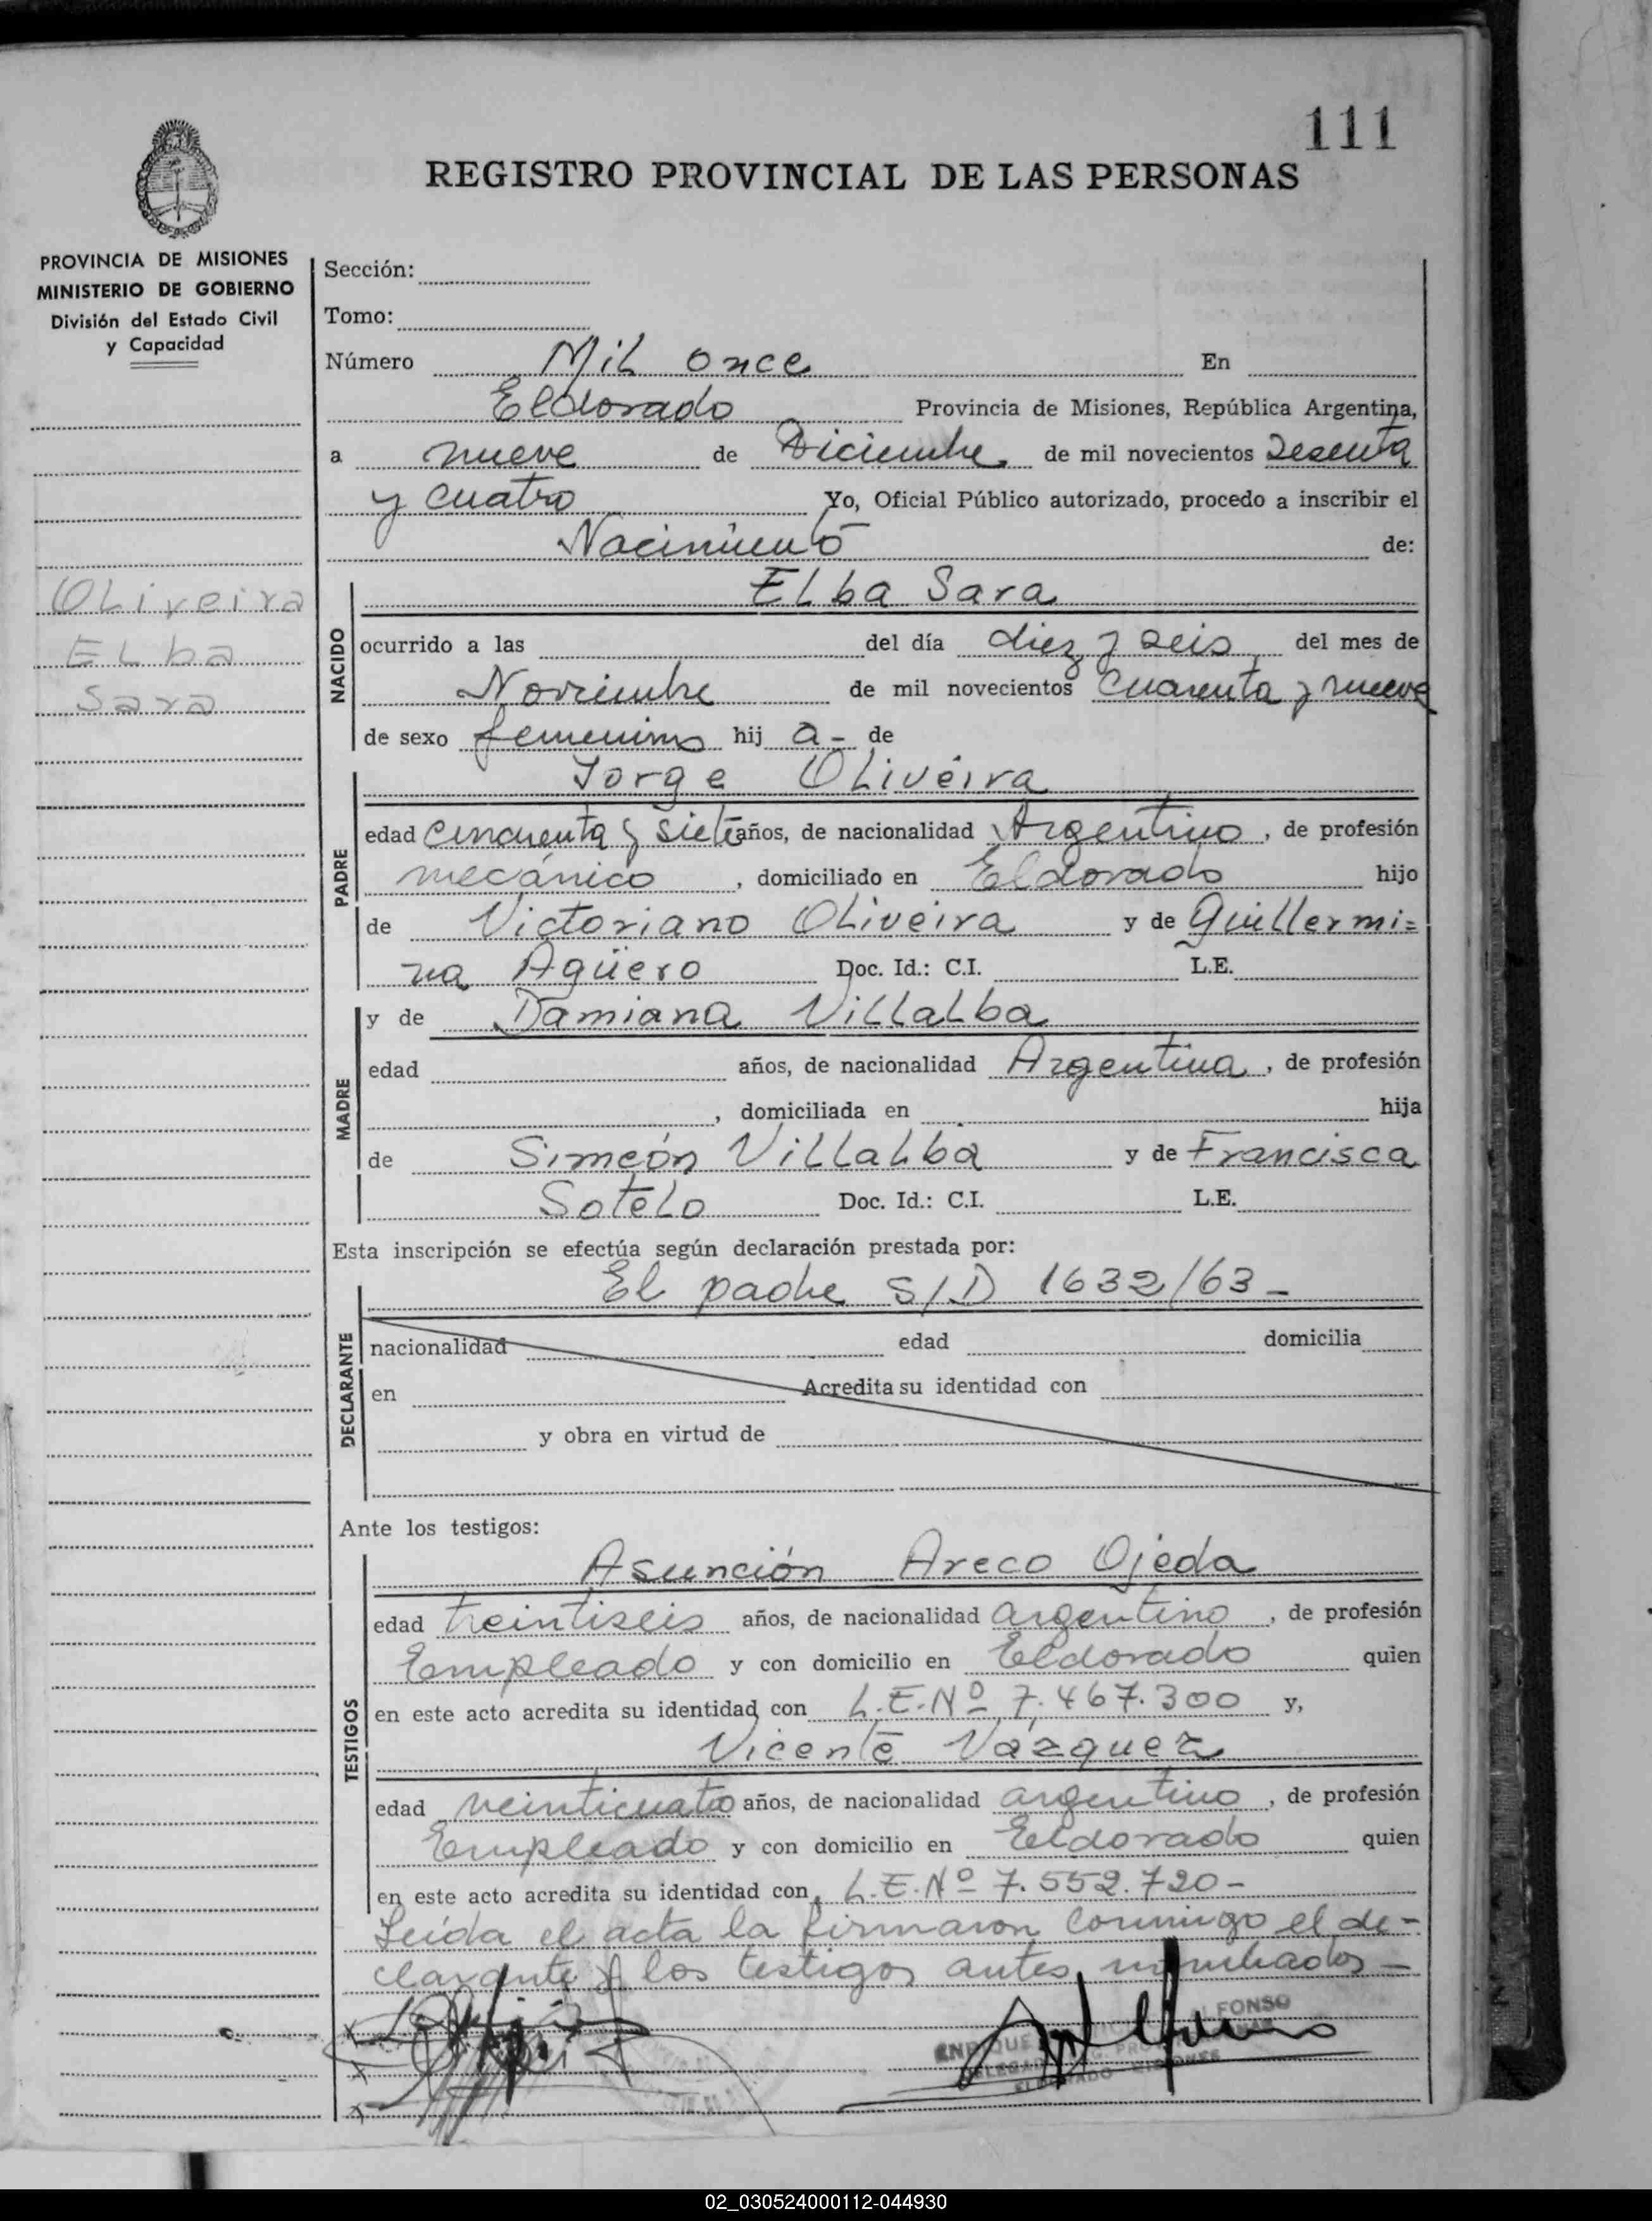 111
REGISTRO PROVINCIAL DE LAS PERSONAS
PROVINCIA DE MISIONES
MINISTERIO DE GOBIERNO
División del Estado Civil
y Capacidad
Oliveira
Elba
Sara
Sección:
Tomo:
Número Mil once En
Eldorado Provincia de Misiones, República Argentina,
a nueve de Diciembre de mil novecientos sesenta
y cuatro Yo, Oficial Público autorizado, procedo a inscribir el
Nacimiento de:
NACIDO
Elba Sara
ocurrido a las del día diez y seis del mes de
Noviembre de mil novecientos cuarenta y nueve
de sexo femenino hij a - de
PADRE
Jorge Oliveira
edad cincuenta y siete años, de nacionalidad Argentino, de profesión
mecánico, domiciliado en Eldorado hijo
de Victoriano Oliveira y de Guillermi=
na Agüero Doc. Id.: C.I. L.E.
MADRE
y de Damiana Villalba
edad años, de nacionalidad Argentina, de profesión
, domiciliada en hija
de Simeón Villalba y de Francisca
Sotelo Doc. Id.: C.I. L.E.
Esta inscripción se efectúa según declaración prestada por:
DECLARANTE
El padre S/D 1632/63-
nacionalidad edad domicilia
en Acredita su identidad con
y obra en virtud de
Ante los testigos:
TESTIGOS
Asunción Areco Ojeda
edad treintiseis años, de nacionalidad argentino, de profesión
Empleado y con domicilio en Eldorado quien
en este acto acredita su identidad con L.E.Nº 7.467.300 y,
Vicente Vázquez
edad veinticuatro años, de nacionalidad argentino, de profesión
Empleado y con domicilio en Eldorado quien
en este acto acredita su identidad con L.E.Nº 7.552.720-
Leída el acta la firmaron conmigo el de-
clarante y los testigos antes nombrados-
ENRIQUE ALFONSO
ELDORADO MISIONES
02_030524000112-044930